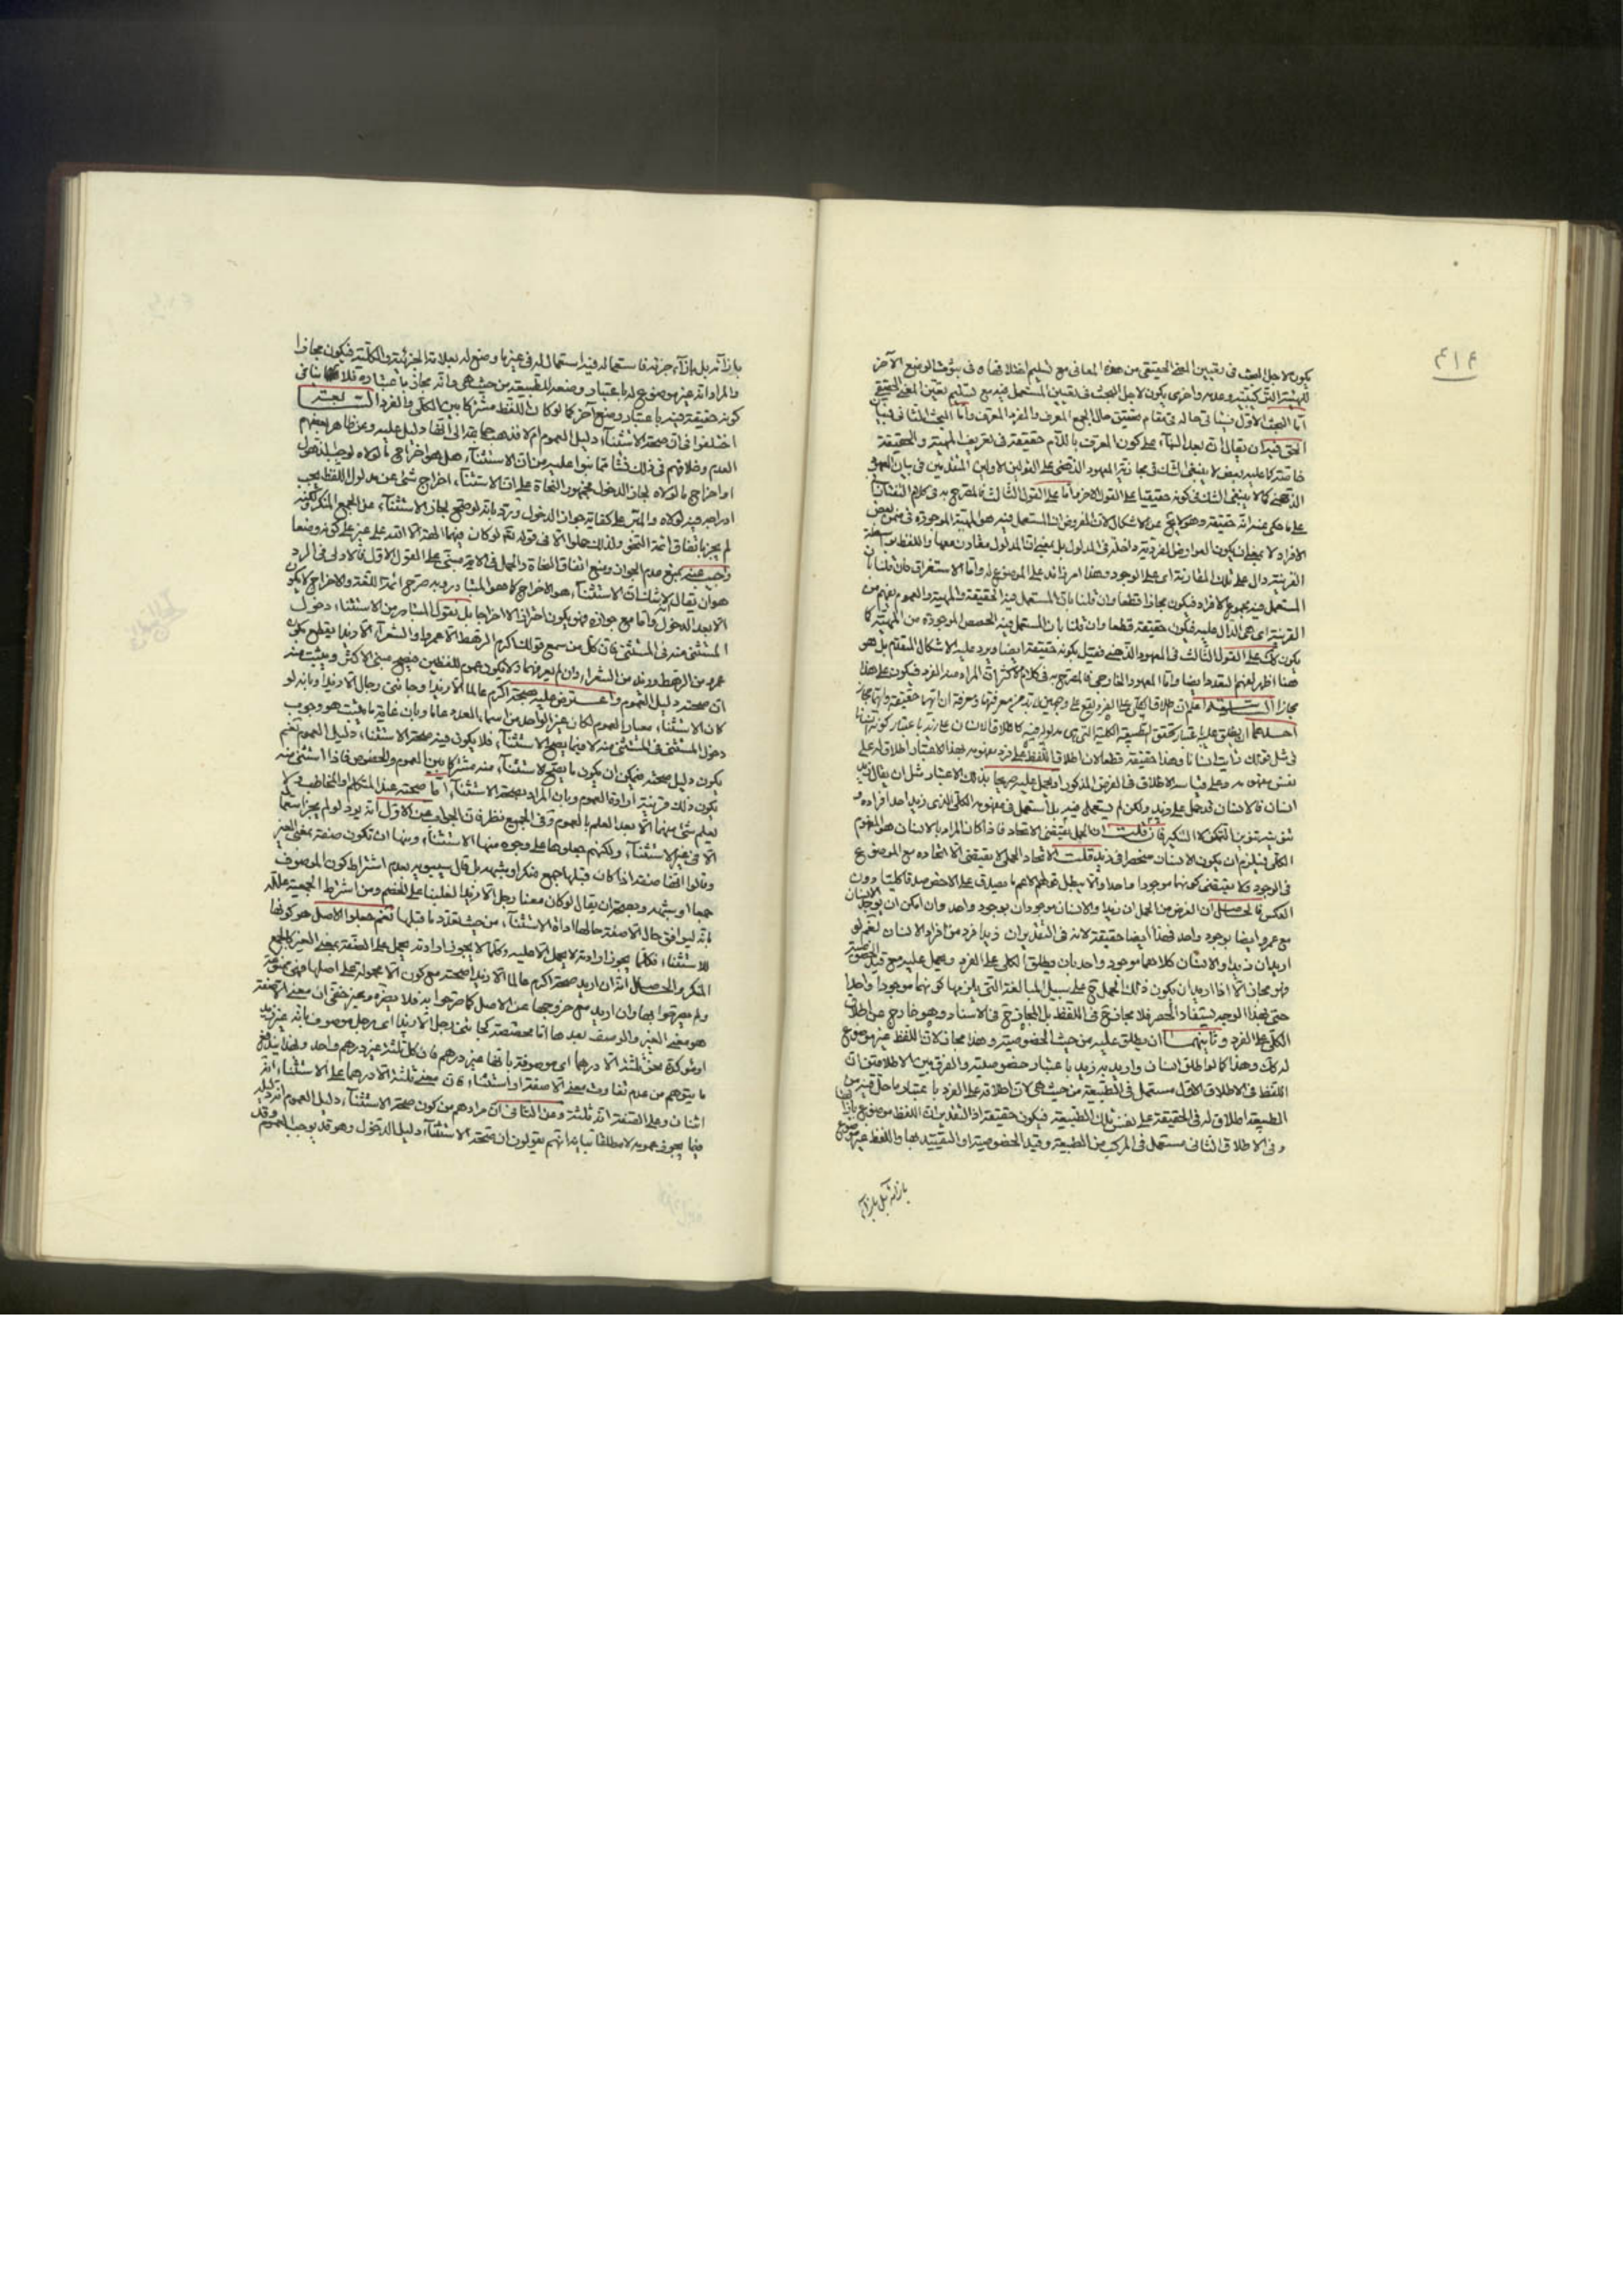 ٤١٤
يكون لاجل البحث فى تعيين المعنى الحقيقى من هذه المعانى مع تسليم اختلافها فى ثبوت الوضع الآخر
للهيئة التركيبية وعدمه واخرى يكون لاجل البحث فى تعيين المستعمل فيه مع تسليم تعيين المعنى الحقيقى
اما البحث الاول فيتأتى حاله فى مقام تحقيق حال الجمع المعرف والمفرد المعرف واما البحث الثانى
الحق فيه ان يقال ان بعد البناء على كون المعرف باللام حقيقة فى تعريف المهية والحقيقة
خاصة كما عليه بعض لا ينبغى الشك فى مجازية المعهود الذهنى على القولين الاولين المتقدمين فى بيان المعهود
الذهنى كما لا ينبغى الشك فى كونه حقيقيا على القول الاخر واما على القول الثالث فالمصرح به فى كلام التفتازانى
على ما حكى عنه انه حقيقة وهو لا يخ عن الاشكال لان المفروض ان المستعمل فيه هو المهية الموجودة فى ضمن بعض
الافراد لا بمعنى ان يكون العوارض الفردية داخلة فى المدلول بل بمعنى ان المدلول مقارن معها واللفظ بواسطة
القرينة دال على تلك المقارنة اى على الوجود وهذا امر زائد على الموضوع له واما الاستغراق فان قلنا بان
المستعمل فيه مجموع الافراد فيكون مجازا قطعا وان قلنا بان المستعمل فيه الحقيقة والمهية والعموم يفهم من
القرينة اى هى الدال عليه فيكون حقيقة قطعا وان قلنا بان المستعمل فيه الحصص الموجودة من المهية كما
يكون كك على القول الثالث فى المعهود الذهنى فقيل بكونه حقيقة ايضا ويرد عليه الاشكال المتقدم بل هو
هنا اظهر لعدم التعدد ايضا واما المعهود الخارجى فالمصرح به فى كلام الاكثر ان المراد منه الفرد فيكون على هذا
مجازا اعلم ان اطلاق الكلى على الفرد يقع على وجهين لا بد من معرفتهما ومعرفة ان ايهما حقيقة وايهما مجاز
احدهما ان يطلق عليه باعتبار تحقق الطبيعة الكلية التى هى مدلوله فيه كاطلاق الانسان على زيد باعتبار كونه انسانا
فى مثل قولك رأيت انسانا وهذا حقيقة قطعا لان اطلاق اللفظ على فرد مفهومه بهذا الاعتبار اطلاق له على
نفس مفهومه وعلى قياس الاطلاق فى الفرض المذكور او يحمل عليه صريحا بذلك الاعتبار مثل ان يقال زيد
انسان فالانسان قد حمل على زيد ولكن لم يستعمل فيه بل استعمل فى مفهومه الكلى الذى زيد احد افراده و
تنوينه تنوين التمكن لا التنكير فان قلت ان الحمل يقتضى الاتحاد فاذا كان المراد بالانسان هو المفهوم
الكلى فيلزم ان يكون الانسان منحصرا فى زيد قلت الاتحاد الحملى لا يقتضى الا اتحاده مع الموضوع
فى الوجود فلا يقتضى كونهما موجودا واحدا والا يبطل قولهم الاعم ما يصدق على الاخص صدقا كليا دون
العكس فالحاصل ان الغرض من الحمل ان زيدا والانسان موجودان بوجود واحد وان امكن ان يوجد الانسان
مع عمرو ايضا بوجود واحد فهذا ايضا حقيقة لانه فى التقدير ان زيدا فرد من افراد الانسان نعم لو
اريد ان زيدا والانسان كلاهما موجود واحد بان يطلق الكلى على الفرد ويحمل عليه مع قيد الخصوصية
فهو مجاز الا اذا اريد ان يكون ذلك الحمل ح على سبيل المبالغة التى يلزمها كونهما موجودا واحدا
حتى بهذا الوجه يستفاد الحصر فلا مجاز ح فى اللفظ بل المجاز ح فى الاسناد وهو خارج عن اطلاق
الكلى على الفرد وثانيهما ان يطلق عليه من حيث الخصوصية وهذا مجاز لان اللفظ غير موضوع
له كك وهذا كما لو اطلق انسان واريد به زيد باعتبار خصوصيته والفرق بين الاطلاقين ان
اللفظ فى الاطلاق الاول مستعمل فى الطبيعة من حيث هى لان اطلاقه على الفرد باعتبار ما حل فيه من
الطبيعة اطلاق له فى الحقيقة على نفس تلك الطبيعة فيكون حقيقة اذ التقدير ان اللفظ موضوع بازائها
وفى الاطلاق الثانى مستعمل فى المركب من الطبيعة وقيد الخصوصية او التقييد بها واللفظ غير موضوع
بازائه بل بازآء
بازائه بل بازآء جزئه فاستعماله فيه استعمال له فى غير ما وضع له بعلاقة الجزئية والكلية فيكون مجازا
والمراد انه غير موضوع له باعتبار وضعه للطبيعة من حيث هى وانه مجاز باعتباره فلا ينافى
كونه حقيقة فيه باعتبار وضع آخر كما لو كان اللفظ مشتركا بين الكلى والفرد
اختلفوا فى ان صحة الاستثنآء دليل العموم ام لا فذهب جماعة الى انها دليل عليه وعن ظاهر بعضهم
العدم وخلافهم فى ذلك نشأ مما بنوا عليه من ان الاستثنآء هل هو اخراج ما لولاه لوجب الدخول
او اخراج ما لولاه لجاز الدخول فجمهور النحاة على ان الاستثنآء اخراج شئ عن مدلول اللفظ يجب
اندراجه فيه لولاه والمبرد على كفاية جواز الدخول ورد بانه لو صح لجاز الاستثنآء عن الجمع المنكر لكنه
لم يجز باتفاق ائمة النحو ولذلك حملوا الا فى قوله تع لو كان فيهما الهة الا الله على غير على كونه وضعا
واجيب عنه بمنع عدم الجواز ومنع اتفاق النحاة والحمل فى الاية مبنى على القول الاول فالاولى فى الرد
هو ان يقال لا شك ان الاستثنآء هو الاخراج كما هو المتبادر وبه صرح ائمة اللغة والاخراج لا يكون
الا بعد الدخول واما مع جوازه فهو يكون احترازا لا اخراجا بل نقول المتبادر من الاستثناء دخول
المستثنى منه فى المستثنى فان كل من سمع قولك اكرم الرهط الا عمروا والشعرآء الا زيدا يقطع بكون
عمرو من الرهط وزيد من الشعراء وان لم يعرفهما ولا يكون عموم اللفظين فيصح مبنى الاكثر ويثبت منه
ان صحته دليل العموم واعترض عليه بصحة اكرم عالما الا زيدا وجاءنى رجال الا زيدا وبانه لو
كان الاستثناء معيار العموم لكان عشر الواحد من اسماء العدد عاما وبان غاية ما يثبت هو وجوب
دخول المستثنى فى المستثنى منه لا فيما يصح الاستثنآء فلا يكون فيه صحة الاستثناء دليل العموم نعم
يكون دليل صحته فيمكن ان يكون ما يصح الاستثنآء منه مشتركا بين العموم والخصوص فاذا استثنى منه
يكون ذلك قرينة ارادة العموم وبان المراد بصحة الاستثنآء اما صحته عند المتكلم او المخاطب ولا
يعلم شئ منهما الا بعد العلم بالعموم وفى الجميع نظر فان الجواب عن الاول انه يرد لو لم يجز استعمال
الا فى غير الاستثنآء ولكنهم جعلوها على وجوه منها الاستثنآء ومنها ان تكون صفة بمعنى الغير
وقالوا انها صفة اذا كان قبلها جمع منكر او شبهه بل قال سيبويه بعدم اشتراط كون الموصوف
جمعا او شبهه وبصحة ان يقال لو كان معنا رجل الا زيد لغلبنا على الخصم ومن اشترط الجمعية علله
بانه ليوافق حال الا صفة حالها اداة الاستثنآء من حيث تعدد ما قبلها نعم جعلوا الاصل هو كونها
للاستثناء فكلما يجوز ارادته لا يحمل الا عليه وكلما لا يجوز ارادته يحمل على الصفة بمعنى الغير كالجمع
المنكر والحاصل انه ان اريد صحة اكرم عالما الا زيدا صحته مع كون الا محمولة على اصلها فهى ممنوعة
ولم يصرحوا بها وان اريد مع خروجها عن الاصل كما صرحوا به فلا يضره وغير خفى ان معنى الا صفة
هو معنى الغير والوصف بعدها اما مخصصة كجاءنى رجل الا زيد اى رجل موصوف بانه غير زيد
او مؤكدة نحو ثلثة الا درهما اى موصوفة بانها غير درهم فان كل ثلثة غير درهم واحد ولهذا يندفع
ما يتوهم من عدم تفاوت معنى الا صفة او استثناء فان معنى ثلثة الا درهما على الاستثناء انه
اثنان وعلى الصفة انه ثلثة وعن الثانى ان مرادهم من كون صحة الاستثنآء دليل العموم انه دليله
فيما يجوز عمومه لا مطلقا بيانه انهم يقولون ان صحة الاستثنآء دليل الدخول وهو قد يوجب العموم وقد